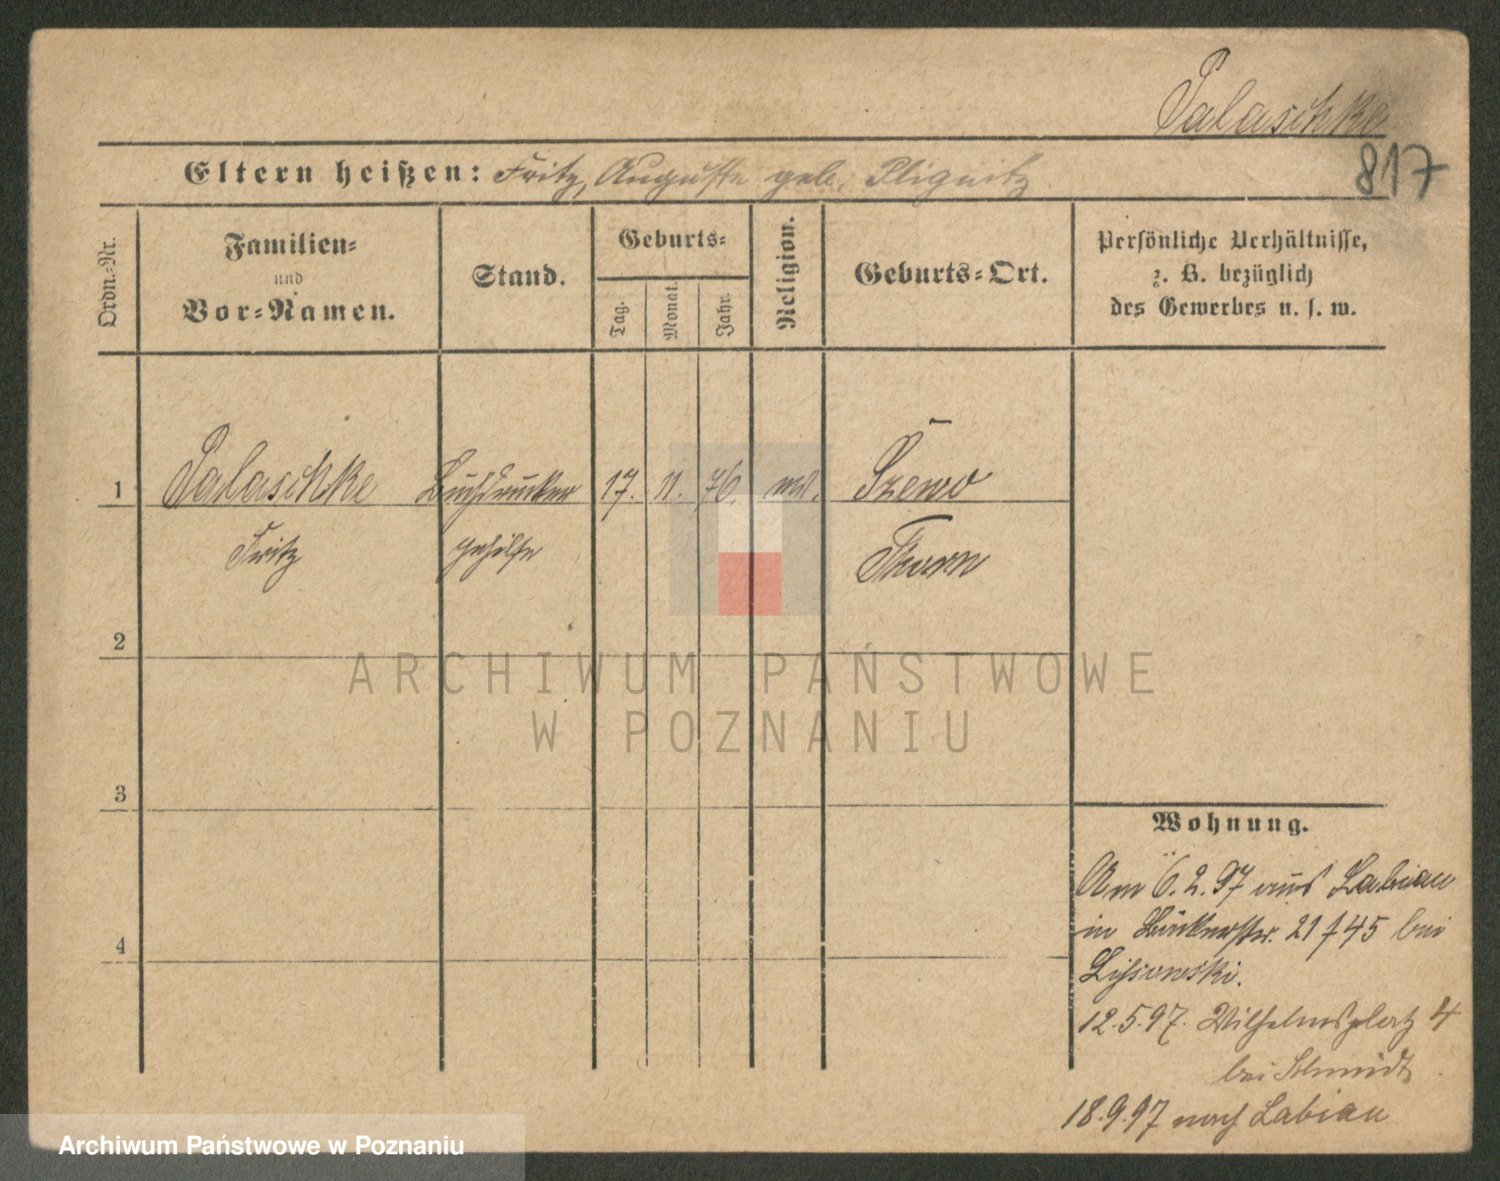 Palaschke
817
Eltern heißen: Fritz, Auguste geb. Plignitz
Ordn.-Nr.
Familien-
und
Vor-Namen.
Stand.
Geburts-
Tag.
Monat.
Jahr.
Religion.
Geburts-Ort.
Persönliche Verhältnisse,
z. B. bezüglich
des Gewerbes u. s. w.
1 Palaschke Buchdrucker 17. 11. 76. Szewo
Fritz gehilfe Thorn
2
3
4
Wohnung.
Am 6.2.97 aus Labian
in 21 745 bei
Lissowski.
12.5.97. Wilhelmsplatz 4
bei Schmidt
18.9.97 nach Labian
ARCHIWUM PAŃSTWOWE
W POZNANIU
Archiwum Państwowe w Poznaniu